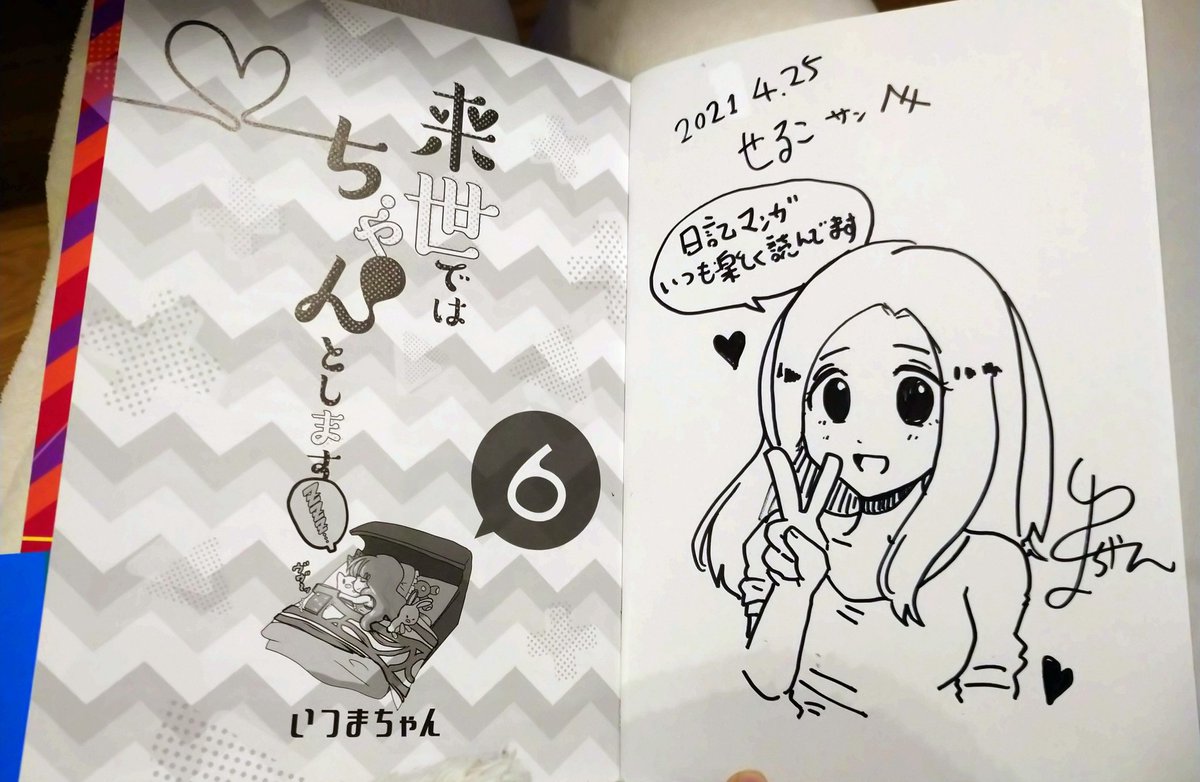 来世では
ちゃんとします
6
いつまちゃん
2021 4.25
せるこサン
日記マンガ
いつも楽しく読んでます